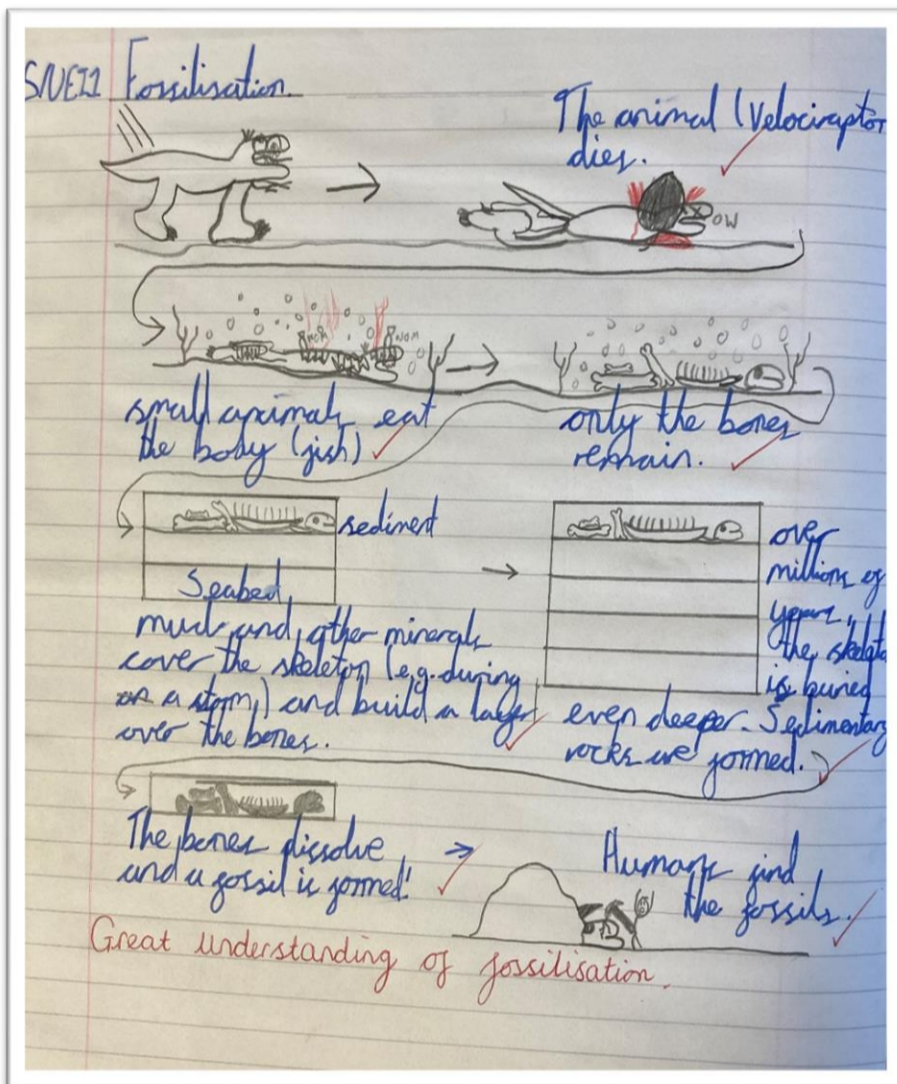 Fossilisation.
The animal (Velociraptor
dies.
OW
NOM
NOM
small animals eat
the body (fish)
only the bones
remain.
sediment
Seabed
mud and other minerals
cover the skeleton (e.g. during
a storm) and build a layer
over the bones.
over
millions of
years,
the skeleto
is buried
even deeper. Sedimentary
rocks are formed.
The bones dissolve
and a fossil is formed!
Humans find
the fossils.
Great understanding of fossilisation.